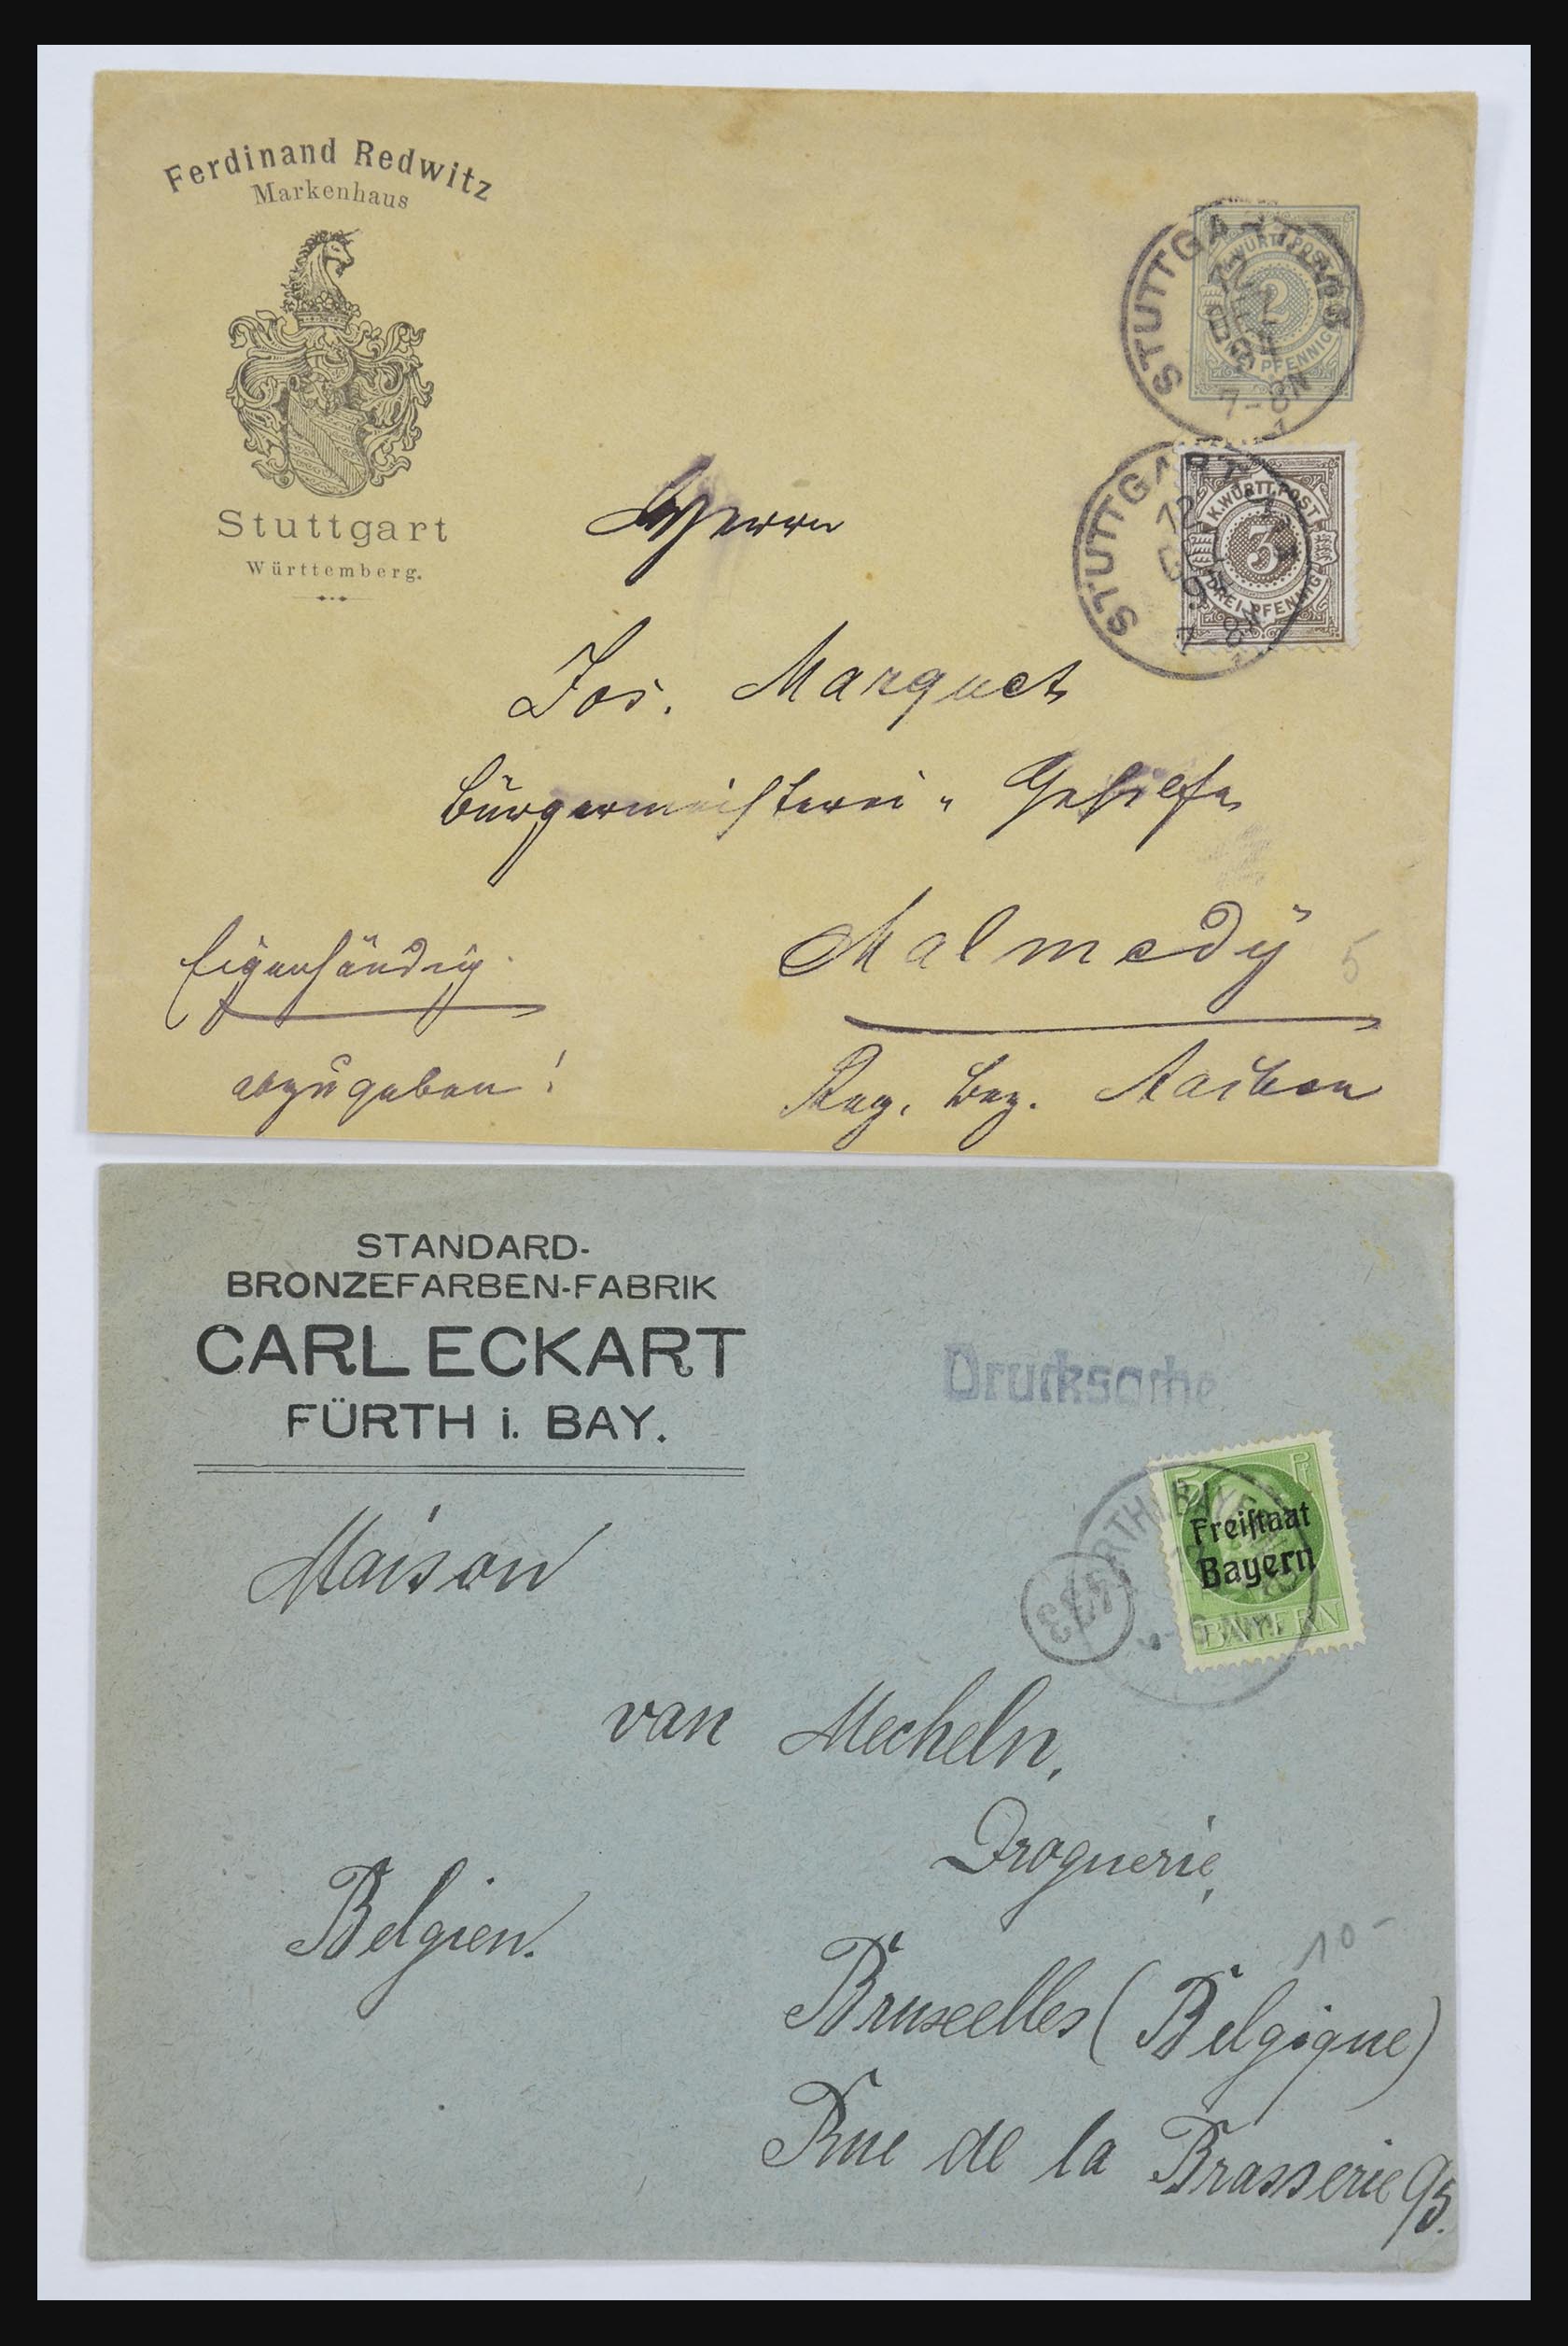 Ferdinand Redwitz
Markenhaus
Stuttgart
Württemberg.
STUTTGART
K. WÜRTT. POST
2
ZWEI PFENNIG
7-8N
STUTTGART
K. WÜRTT. POST
3
DREI PFENNIG
Herrn
Jos. Marquet
Bürgermeisterei-Gehilfe
Malmedy
5
Reg. Bez. Aachen
Eigenhändig
abzugeben!
STANDARD-
BRONZEFARBEN-FABRIK
CARL ECKART
FÜRTH i. BAY.
Drucksache
5 Pf
Freistaat
Bayern
BAYERN
Maison
van Mecheln,
Droguerie,
Belgien.
10-
Bruxelles (Belgique)
Rue de la Brasserie 95.